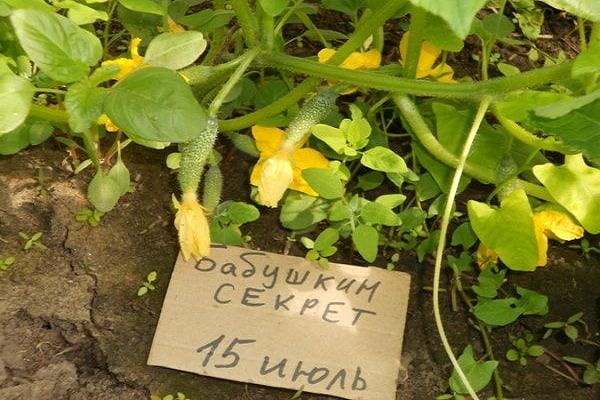 Бабушкин
СЕКРЕТ
15 июль